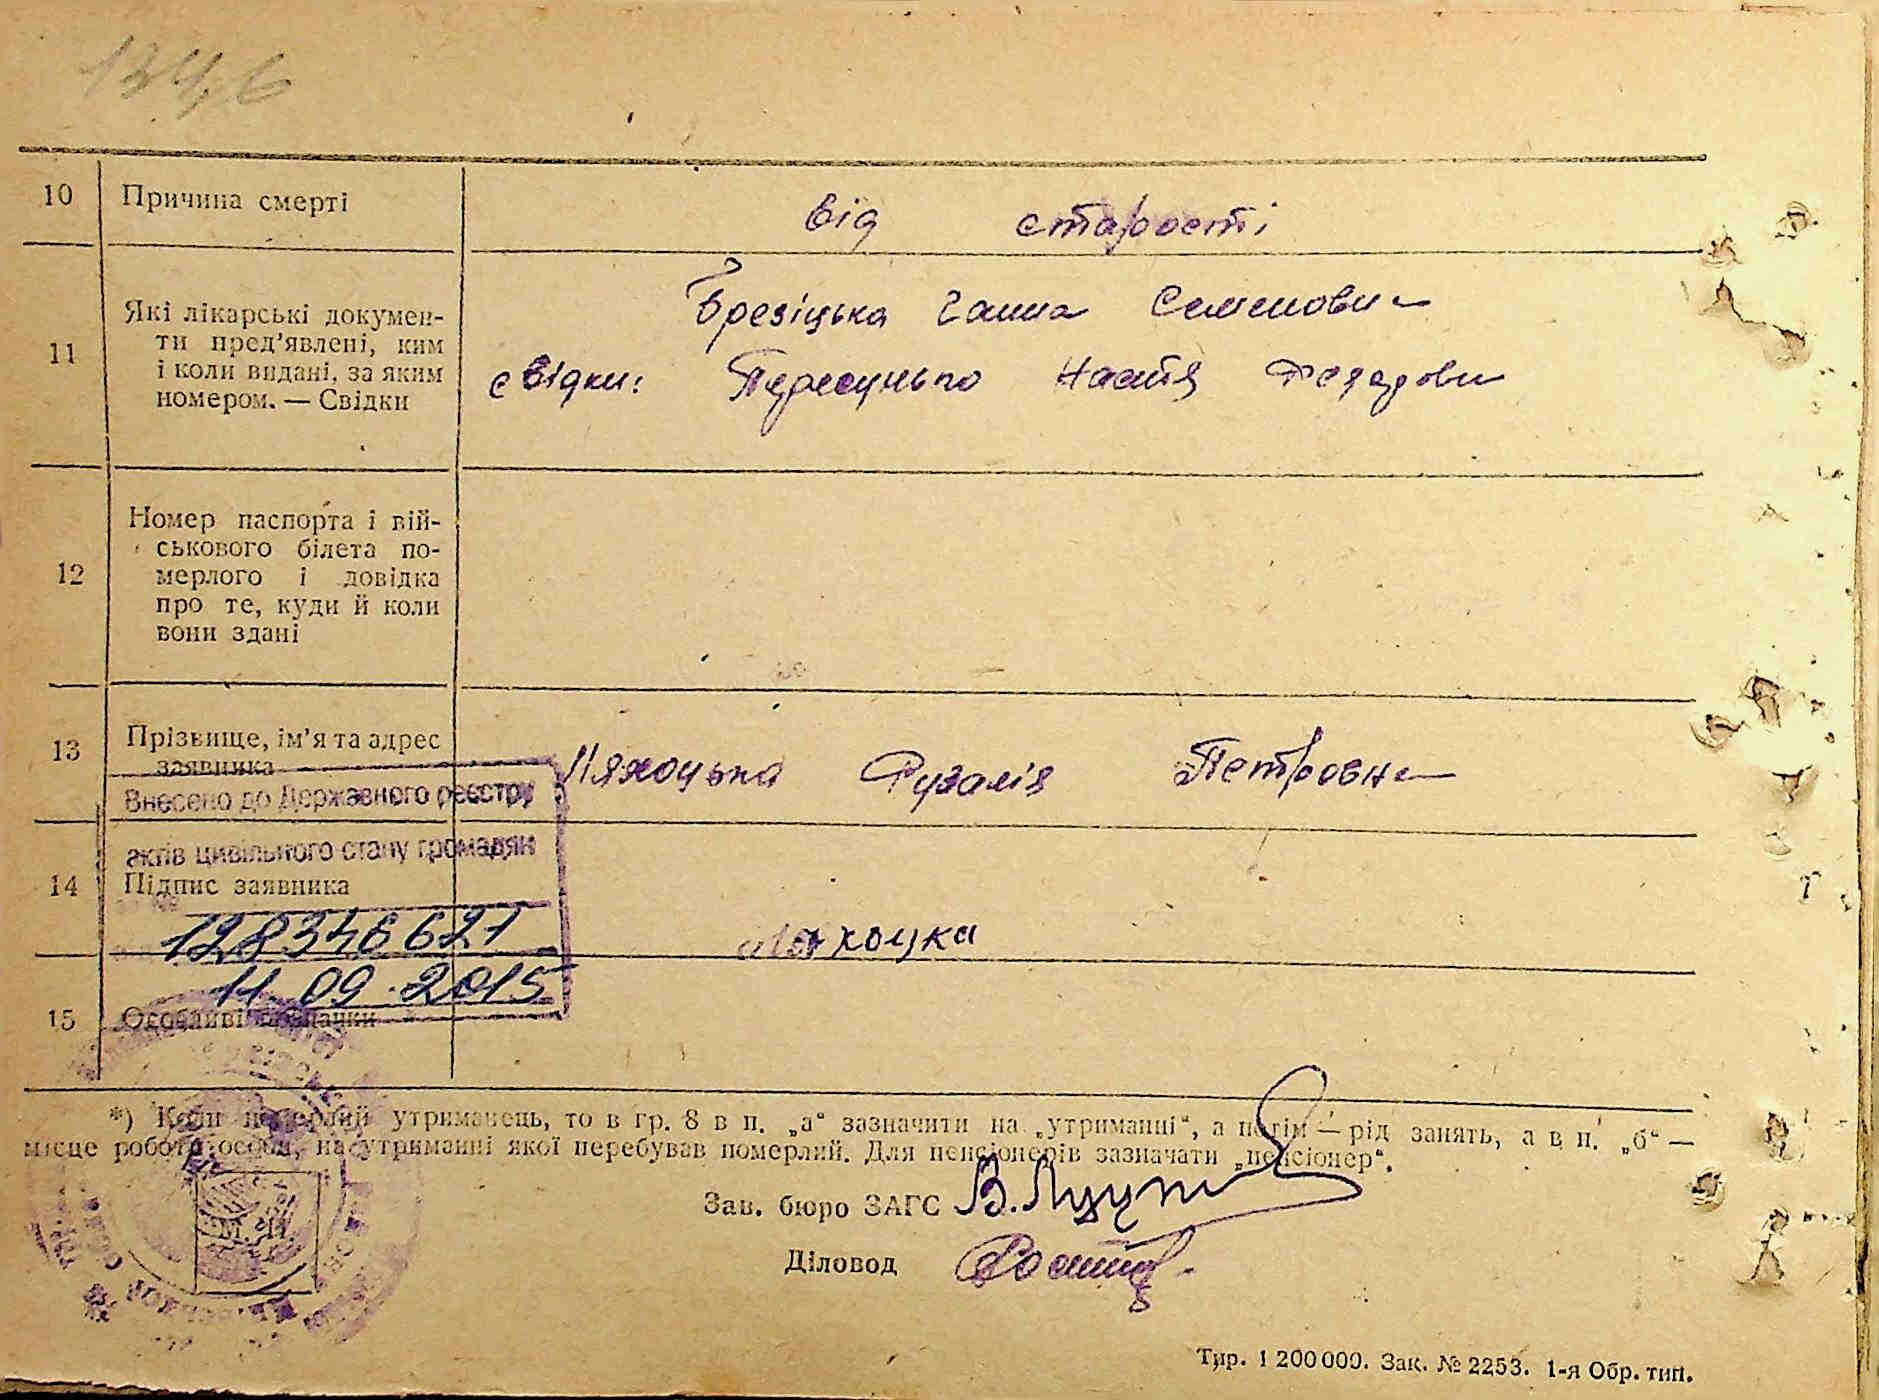 1346
10 Причина смерті від старості
11 Які лікарські докумен-
ти пред’явлені, ким
і коли видані, за яким
номером. — Свідки
Брезіцька Ганна Семеновн
свідки: Пересунько Настя Федоровн
12 Номер паспорта і вій-
ськового білета по-
мерлого і довідка
про те, куди й коли
вони здані
13 Прізвище, ім’я та адрес
заявника
Ляхоцька Рузалія Петровна
Внесено до Державного реєстру
актів цивільного стану громадян
14 Підпис заявника
Ляхоцка
128346621
11.09.2015
15 Особливі
*) Коли померлий утриманець, то в гр. 8 в п. „а“ зазначити на „утриманні“, а потім — рід занять, а в п. „б“ —
місце роботи особи, на утриманні якої перебував померлий. Для пенсіонерів зазначати „пенсіонер“.
Зав. бюро ЗАГС
М. П.
Діловод
Тир. 1 200 000. Зак. № 2253. 1-я Обр. тип.